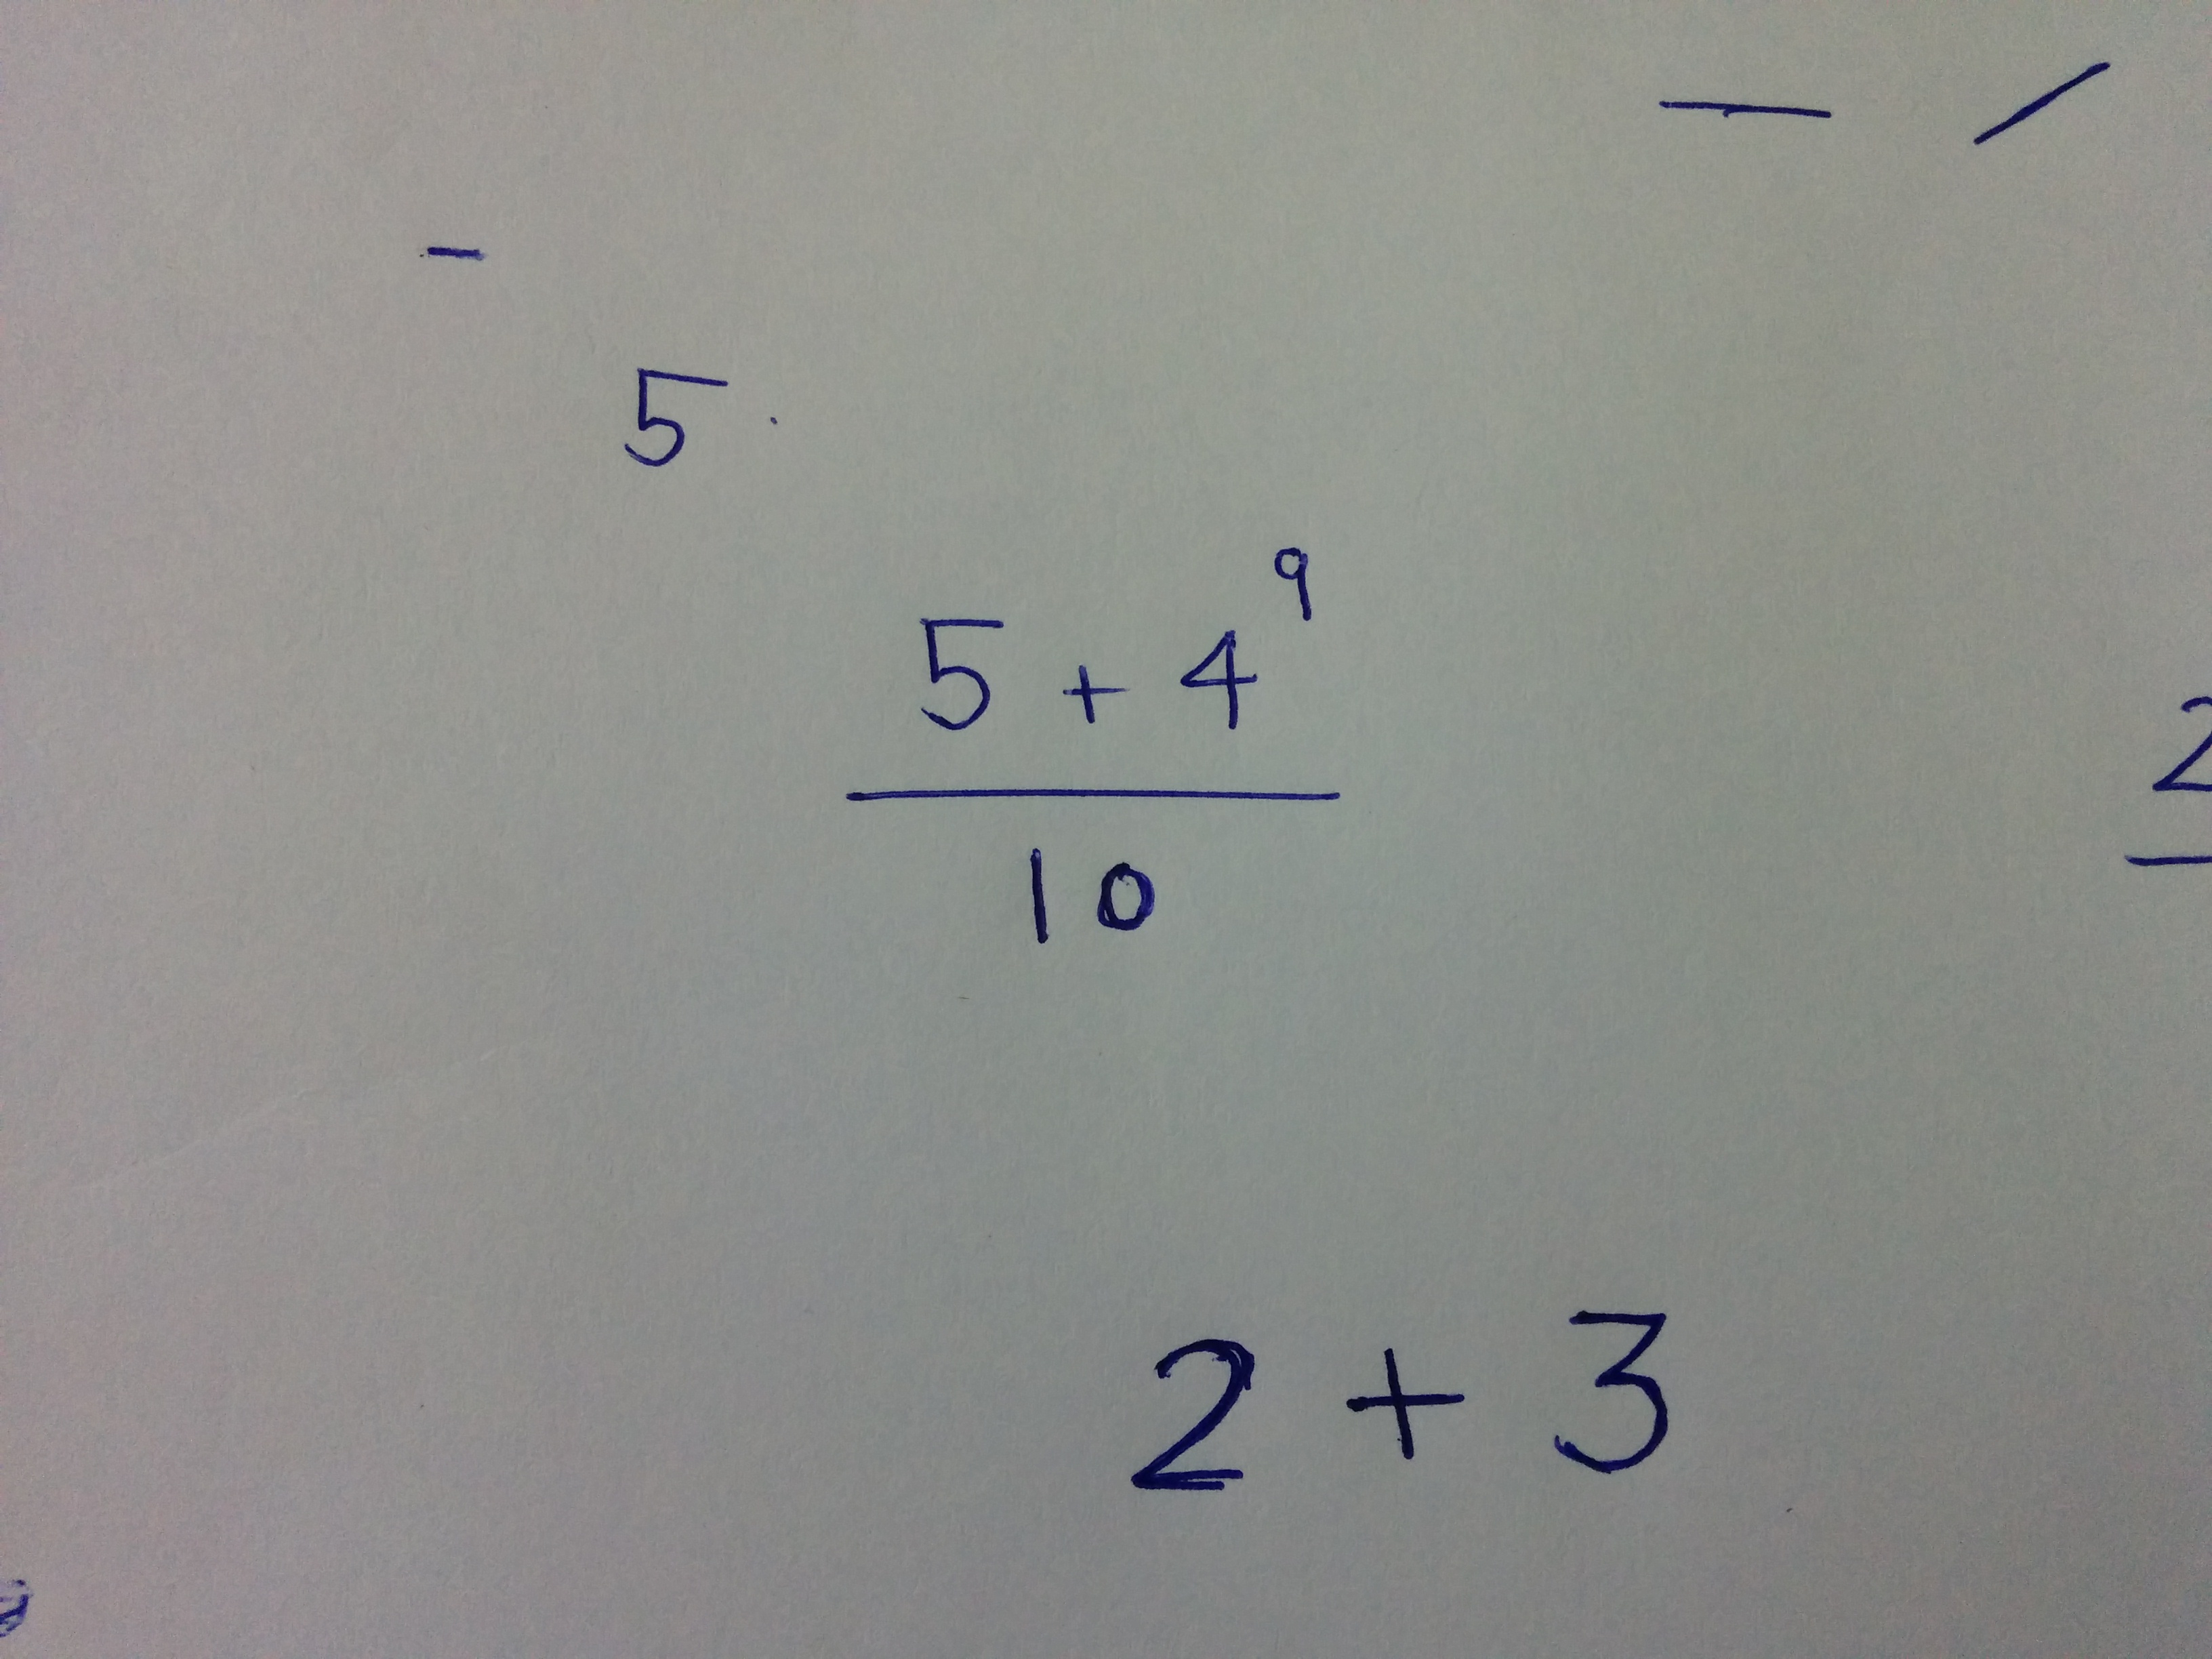 — /
-
5
5 + 4^9
10
2
2 + 3